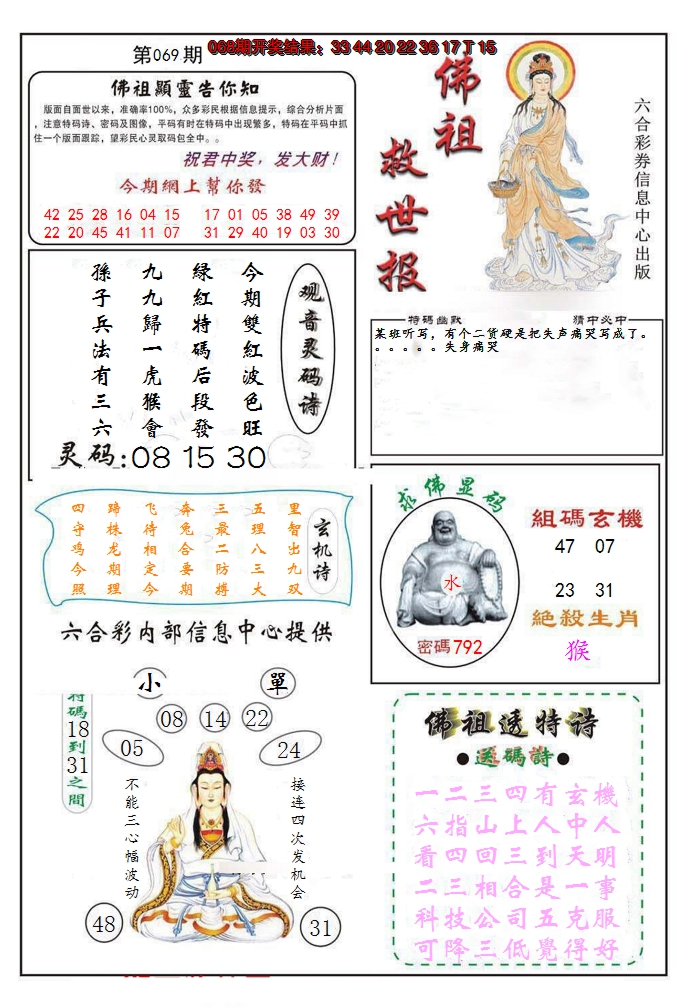 第069期
068期开奖结果：33 44 20 22 36 17 T 15
佛祖顯靈告你知
版面自面世以来，准确率100%，众多彩民根据信息提示，综合分析片面
，注意特码诗、密码及图像，平码有时在特码中出现繁多，特码在平码中抓
住一个版面跟踪，望彩民心灵取码包全中。。
祝君中奖，发大财！
今期網上幫你發
42 25 28 16 04 15 17 01 05 38 49 39
22 20 45 41 11 07 31 29 40 19 03 30
佛祖
救世报
六合彩券信息中心出版
观音灵码诗
今期雙紅波色旺
綠紅特碼后段發
九九歸一虎猴會
孫子兵法有三六
灵码:08 15 30
特碼幽默
猜中必中
某班听写，有个二货硬是把失声痛哭写成了。
。。。。。失身痛哭
玄机诗
里智出九双
五理八三大
三最二防搏
奔兔合要期
飞待相定今
蹄株龙期理
四守鸡今照
六合彩内部信息中心提供
求佛显码
水
密碼792
組碼玄機
47 07
23 31
絶殺生肖
猴
小
單
特碼18到31之間
08 14 22
05
24
不能三心幅波动
接连四次发机会
48
31
佛祖透特诗
●送碼詩●
一二三四有玄機
六指山上人中人
看四回三到天明
二三相合是一事
科技公司五克服
可降三低覺得好